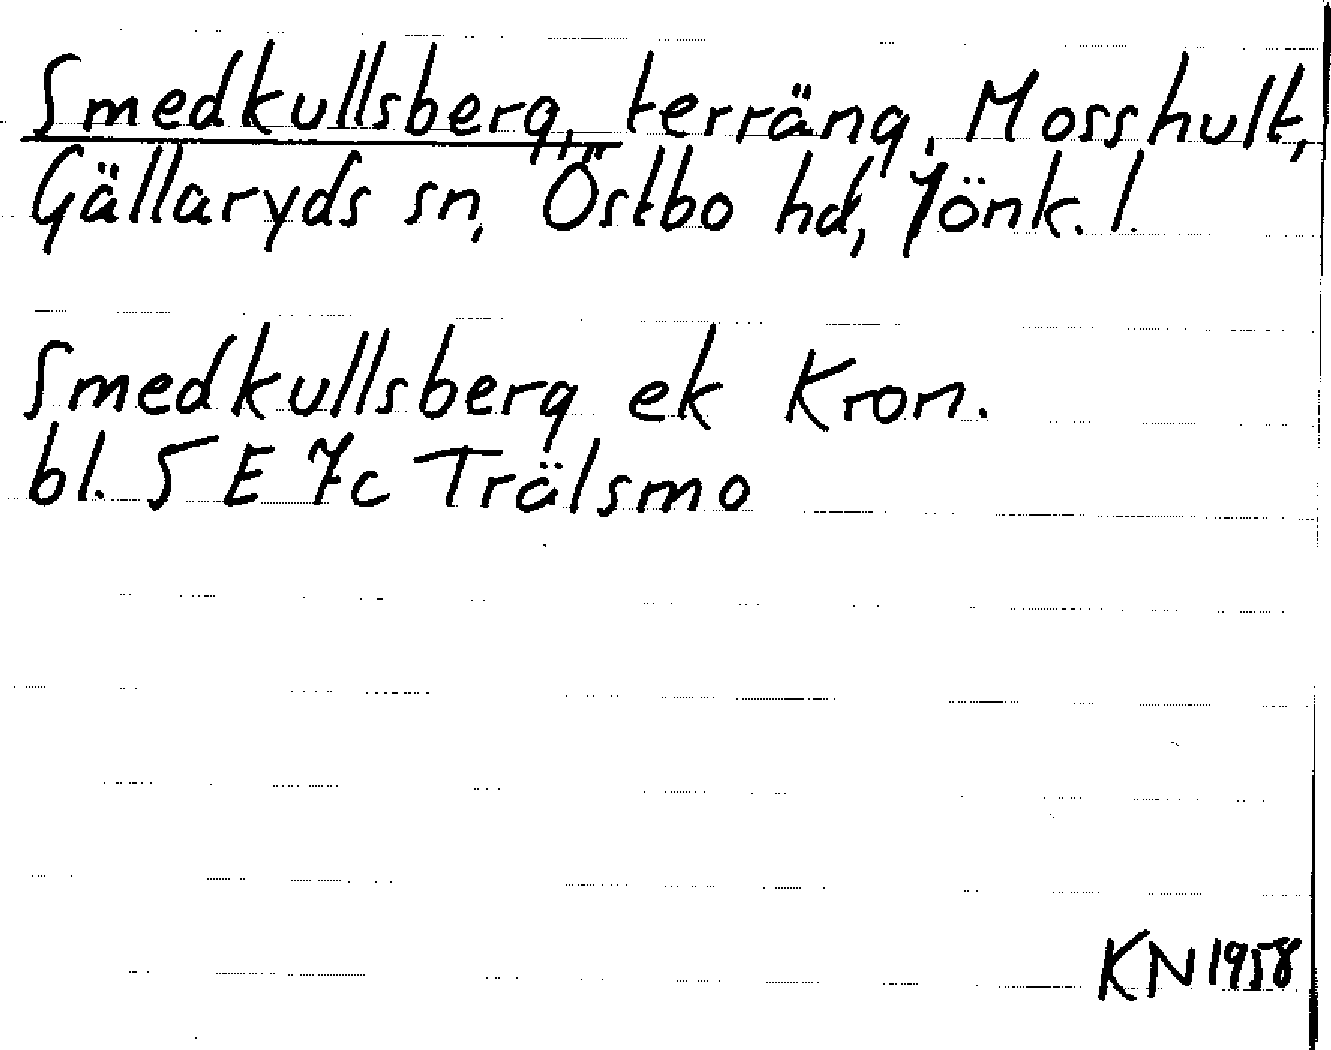 Smedkullsberg, terräng, Mosshult,
Gällaryds sn, Östbo hd, Jönk. l.
Smedkullsberg ek Kron.
bl. 5 E 7c Trälsmo
KN 1958